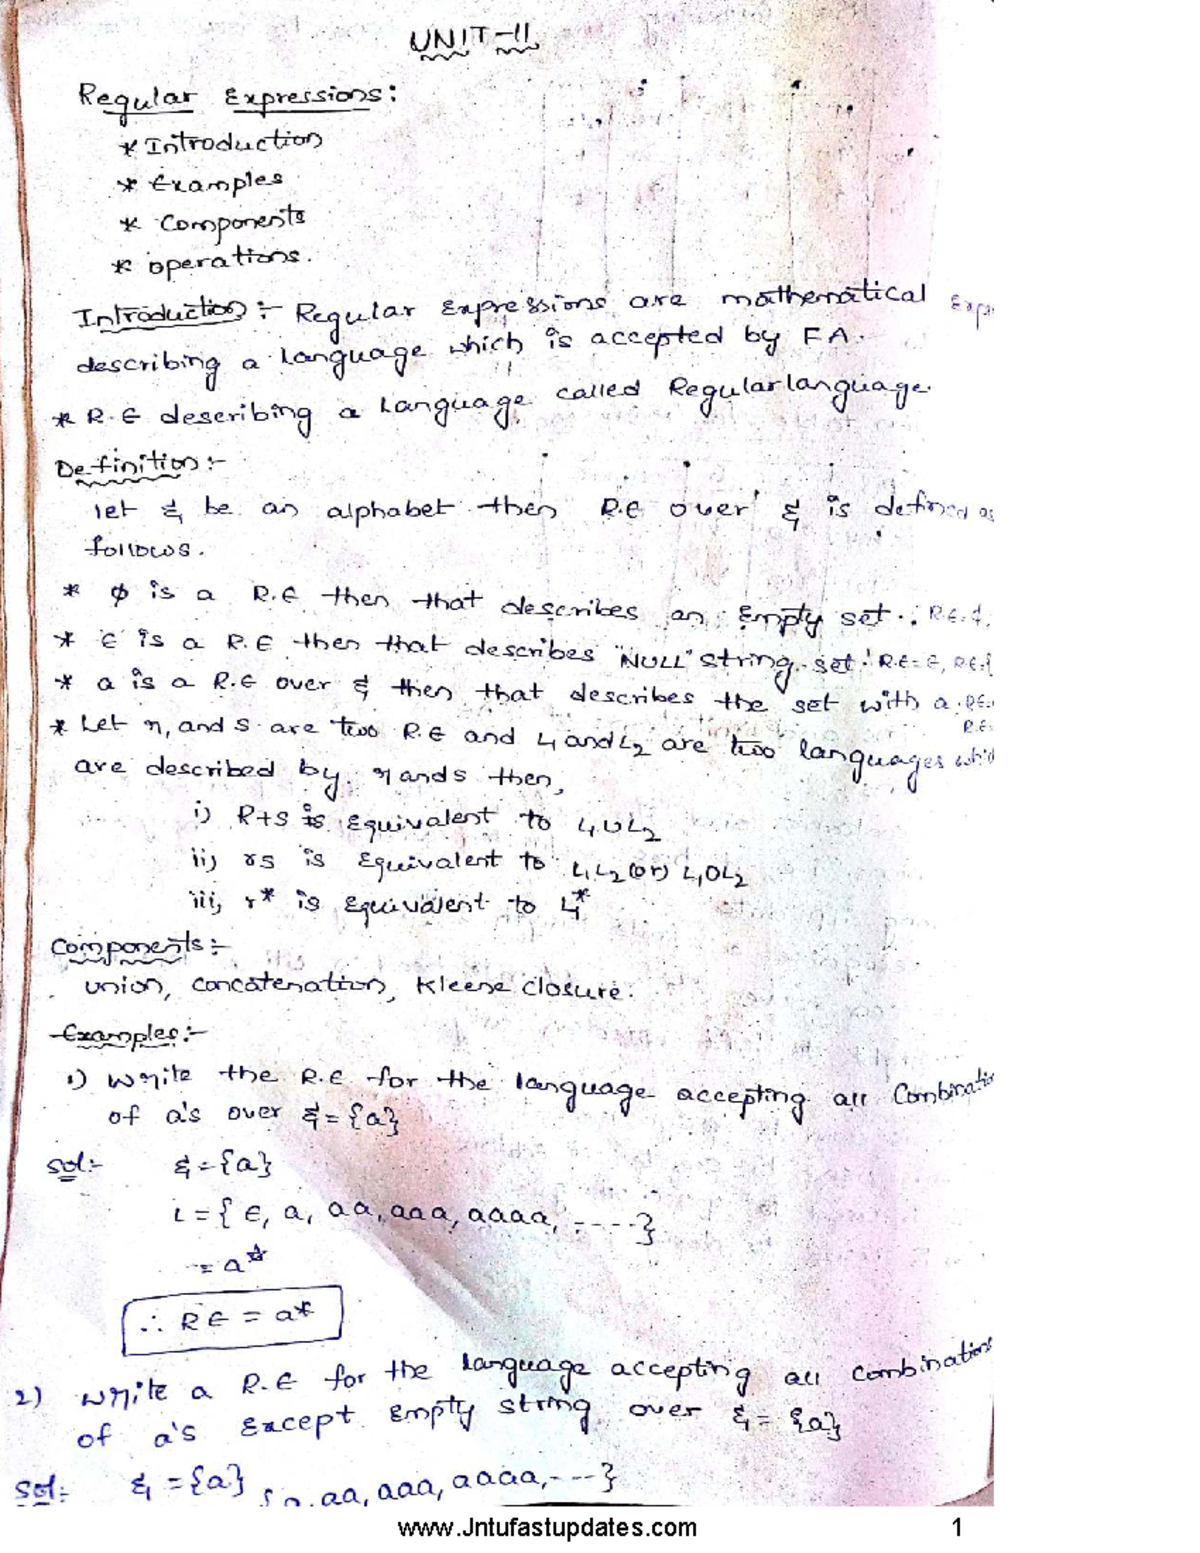 UNIT-II
Regular Expressions:
* Introduction
* Examples
* Components
* operations.
Introduction:- Regular Expressions are mathematical
describing a language which is accepted by FA.
* R.E describing a language called Regular language.
Definition:-
let Σ be an alphabet then R.E over Σ is defined as
follows.
* φ is a R.E then that describes an Empty set.
* ε is a R.E then that describes "NULL" string set. R.E=ε,
* a is a R.E over Σ then that describes the set with a.
* Let r, and s are two R.E and L1 and L2 are two languages
are described by r and s then,
i) R+S is equivalent to L1UL2
ii) rs is Equivalent to L1L2 (or) L1OL2
iii) r* is Equivalent to L1*
Components:-
union, concatenation, Kleene closure.
Examples:-
1) write the R.E for the language accepting all
of a's over Σ = {a}
Sol:- Σ = {a}
L = { ε, a, aa, aaa, aaaa, -----}
= a*
∴ RE = a*
2) write a R.E for the language accepting all combinations
of a's except empty string over Σ = {a}
Sol: Σ = {a}
aa, aaa, aaaa, ---}
www.Jntufastupdates.com 1